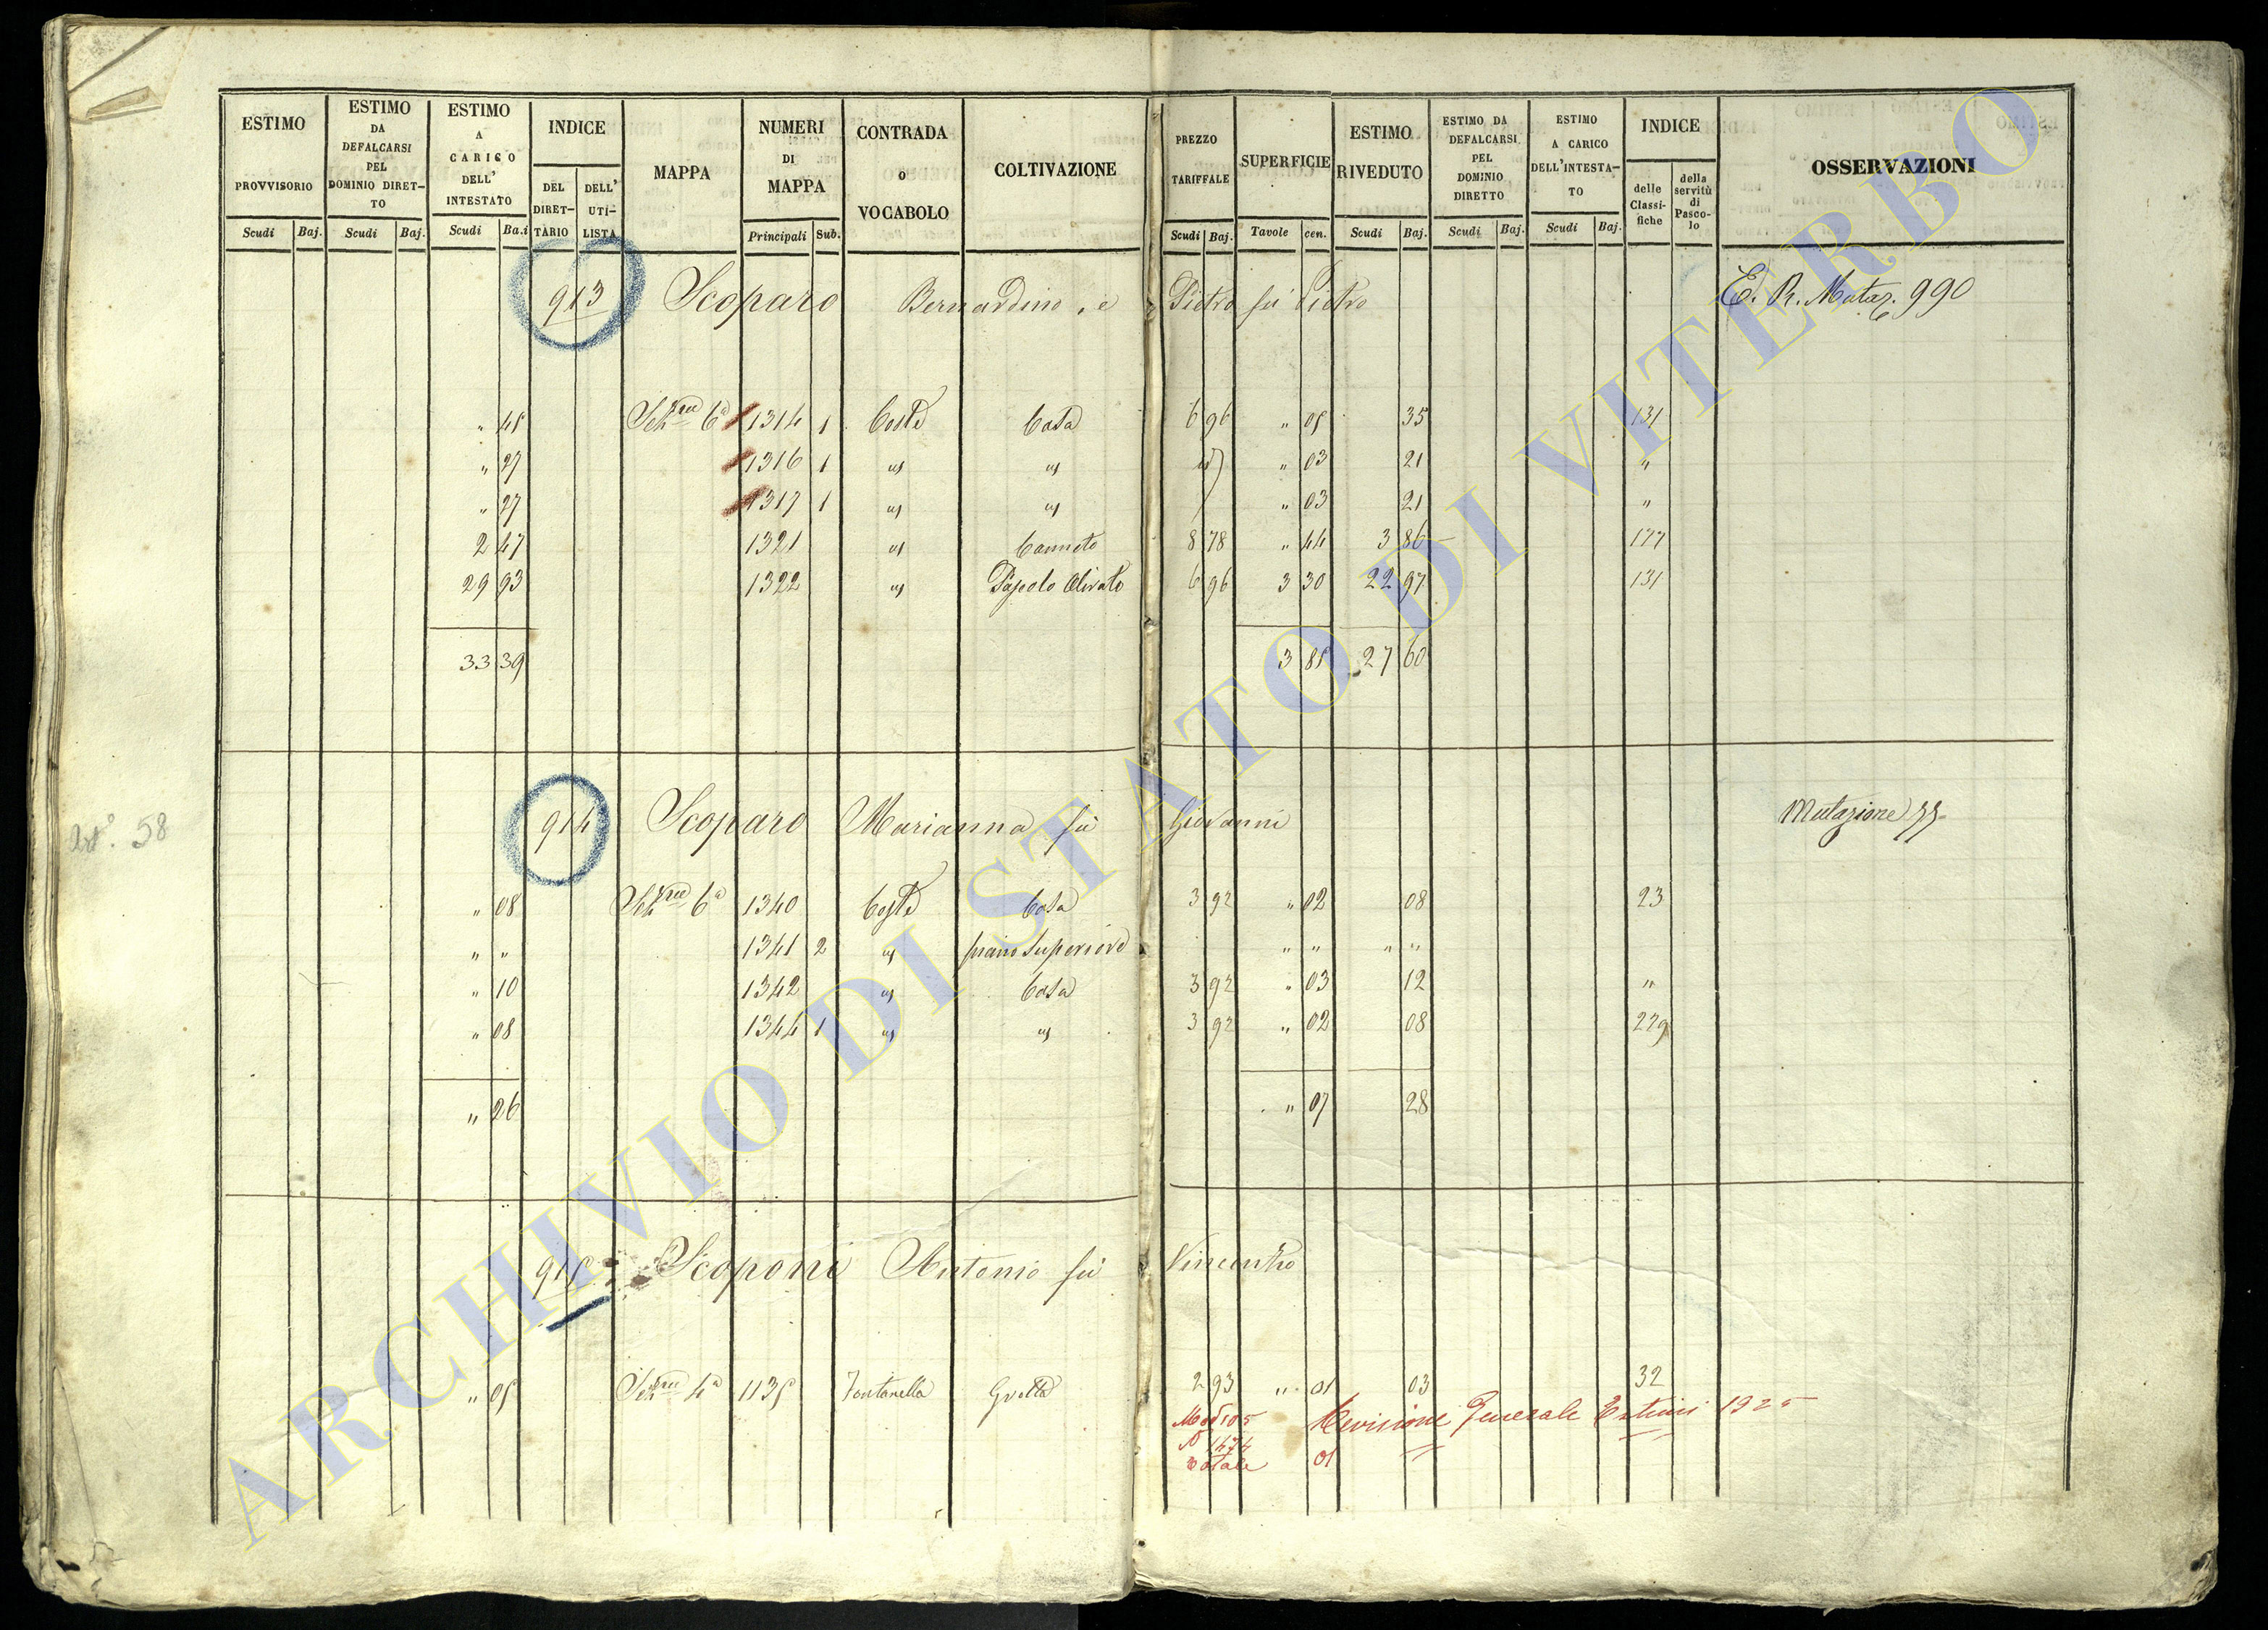 ESTIMO PROVVISORIO Scudi Baj.
ESTIMO DA DEFALCARSI PEL DOMINIO DIRET-TO Scudi Baj.
ESTIMO A CARICO DELL' INTESTATO Scudi Ba.i
INDICE DEL DIRET-TARIO DELL' UTI-LISTA
MAPPA
NUMERI DI MAPPA Principali Sub.
CONTRADA O VOCABOLO
COLTIVAZIONE
PREZZO TARIFFALE Scudi Baj.
SUPERFICIE Tavole cen.
ESTIMO RIVEDUTO Scudi Baj.
ESTIMO DA DEFALCARSI PEL DOMINIO DIRETTO Scudi Baj.
ESTIMO A CARICO DELL'INTESTA-TO Scudi Baj.
INDICE delle Classi-fiche della servitù di Pasco-lo
OSSERVAZIONI
913 Scoparo Bernardino, e Pietro fù Pietro E. R. Mutaz. 990
" 45 Sez.ne 6a 1314 1 Coste Casa 6 96 " 05 35 131
" 27 1316 1 " " " 03 21 "
" 27 1317 1 " " " 03 21 "
2 47 1321 " Canneto 8 78 " 44 3 86 177
29 93 1322 " Pascolo Olivato 6 96 3 30 22 97 131
33 39 3 85 27 60
Art.o 58
914 Scoparo Marianna fù Giovanni Mutazione 55
" 08 Sez.ne 6a 1340 Coste Casa 3 92 " 02 08 23
" " 1341 2 " piano Superiore " " " "
" 10 1342 " Casa 3 92 " 03 12 "
" 08 1344 1 " " 3 92 " 02 08 229
" 26 " 07 28
915 Scoponi Antonio fù Vincenzo
" 05 Sez.ne 4a 1135 Fontanella Grotta 2 93 " 01 03 32
Mod 105 Revisione Generale Estimi 1925
N 1474
Totale 01
ARCHIVIO DI STATO DI VITERBO